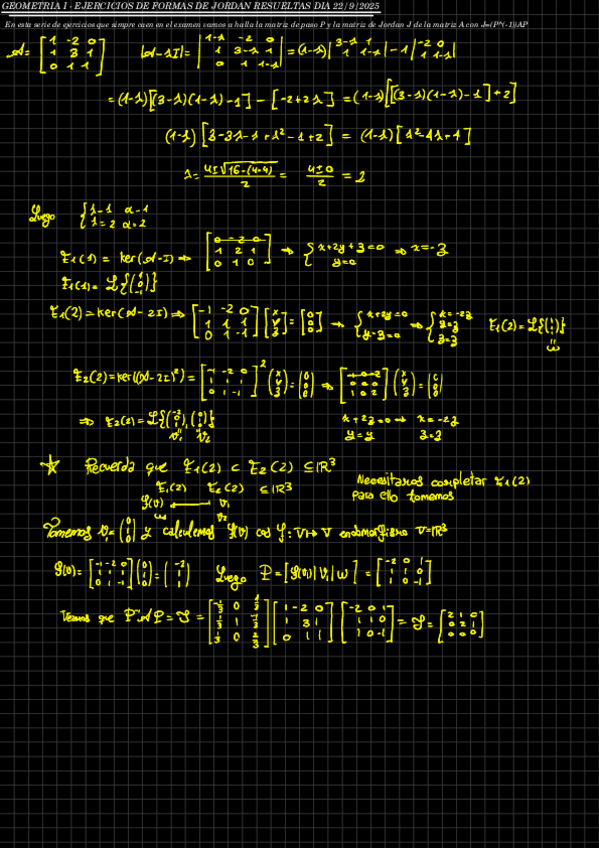 GEOMETRIA I - EJERCICIOS DE FORMAS DE JORDAN RESUELTAS DIA 22/9/2025
En esta serie de ejercicios que simpre caen en el examen vamos a halla la matriz de paso P y la matriz de Jordan J de la matriz A con J=(P^(-1))AP
A = [1 -2 0; 1 3 1; 0 1 1] |A-λI| = |1-λ -2 0; 1 3-λ 1; 0 1 1-λ| = (1-λ)|3-λ 1; 1 1-λ| - 1|-2 0; 1 1-λ|
= (1-λ)[(3-λ)(1-λ)-1] - [-2+2λ] = (1-λ)[[(3-λ)(1-λ)-1]+2]
(1-λ)[3-3λ-λ+λ²-1+2] = (1-λ)[λ²-4λ+4]
λ = 4±√16-(4·4) / 2 = 4±0 / 2 = 2
Luego {λ=1 α=1; λ=2 α=2
E₁(1) = ker(A-I) ⇒ [0 -2 0; 1 2 1; 0 1 0] ⇒ {x+2y+z=0; y=0 ⇒ x=-z
E₁(2) = ker(A-2I) ⇒ [-1 -2 0; 1 1 1; 0 1 -1][x; y; z] = [0; 0; 0] ⇒ {x+2y=0; y-z=0 ⇒ {x=-2z; y=z; z=z
E₂(2) = ker((A-2I)²) = [-1 -2 0; 1 1 1; 0 1 -1]² (x; y; z) = (0; 0; 0)
x+2z=0 ⇒ x=-2z
y=y z=z
☆ Recuerda que E₁(2) ⊂ E₂(2) ⊆ ℝ³
E₁(2) E₂(2) ⊆ ℝ³
Necesitamos completar E₁(2)
para ello tomemos
f(v₁) ← v₁
w v₂
Tomemos v₁ = y calculemos f(v) con f: V→V endomorfismo V=ℝ³
Luego P = [f(v₁)|v₁|w] = [-2 0 1; 1 1 0; 1 0 -1]
Veamos que P⁻¹AP = J = [1 -2 0; 1 3 1; 0 1 1] [-2 0 1; 1 1 0; 1 0 -1] = J = [2 1 0; 0 2 1; 0 0 0]